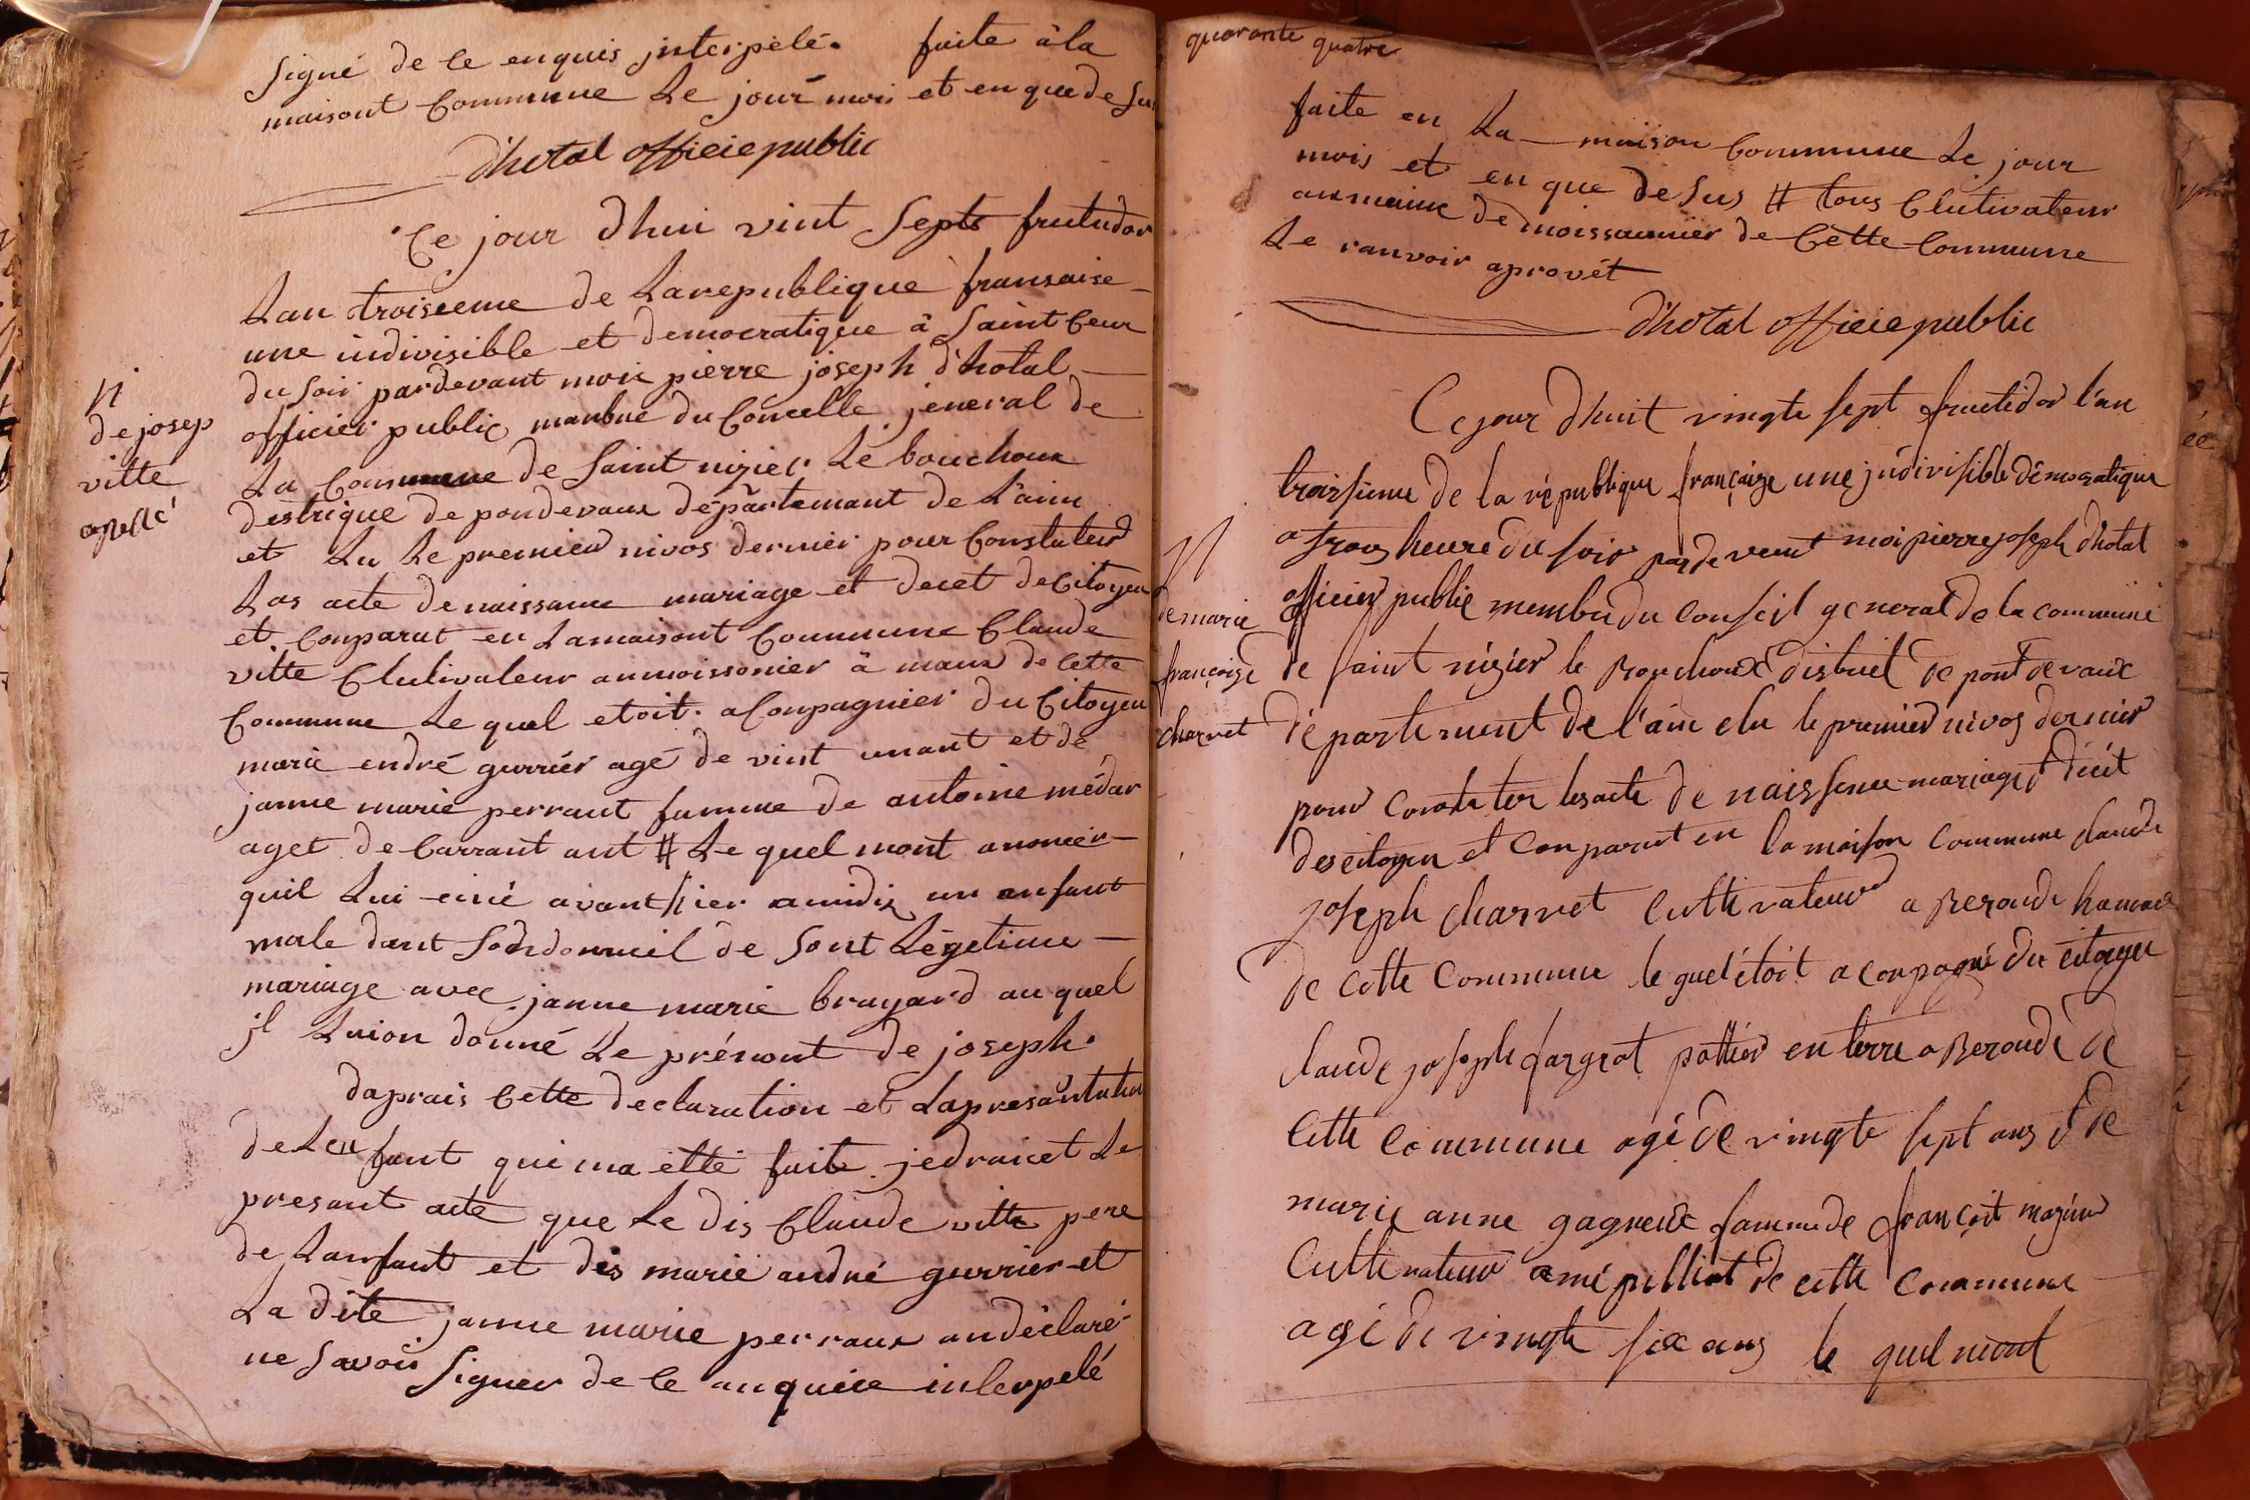 signé de ce enquis jnterpelé. faite à la
maisont Commune Le jour mois et en que de su
d'hotal officie public
Ce jour d'hui vint septs frutudor
Lan troiseme de Larepublique fransaise
une indivisible et democratique à Saint Ceur
du soir pardevant moi pierre joseph d'hotal
officier public manbre du Concelle jeneral de
La Commune de Saint nizier Le bouchoux
destrique de pondevaux departemant de L'ain
et Lu Le premier nivos dernier pour Constater
Las acte denaissance mariage et decet de Citoyen
et Conparut en Lamaisont Commune Claude
vitte Clutivateur anmoissonier à manx de Cette
Commune Le quel etoit aConpagnier du Citoyen
marie endré gurrier agé de vint unant et de
janne marie perraut famme de antoine médar
aget de Carrant ant # Le quel mont anoncér
quil Lui einé avant hier amidis un anfant
male dant son donmicil de sont Légetime
mariage avec janne marie brayard au quel
jl Luion donné Le prénont de joseph.
daprais Cette declaration et Lapresantation
de Lenfant qui ma etté faite jedraicet Le
presant acte que Le dis Claude vitte pere
de Lanfant et dis marie andré gurrier et
La dite janne marie perraux andéclaré
ne savoir signer de Ce anquiee interpelé
N
de josep
vitte
apellé
quarante quatre
faite en La maison Commune Le jour
mois et en que de sus # tous Clutivateur
anmainx de moissaunier de Cette Commune
Le ranvoir aprovét
d'hotal officie public
Ce jour d'huit vingte sept fructidor l'an
troissieme de la république françaize une jndivisible démocratique
a trois heure du soir pardevent moi pierre joseph d'hotal
officier public membre du conseil general de la commune
de saint nizier le Bouchoux district de pont de vaux
département de l'ain elu le premier nivos dernier
pour constater les acte de naissence mariage et décét
des citoyen et conparut en la maison commune claude
joseph charvet cultivateur a Beroude hamau
de cette commune le quel étoit aconpagné du citoyen
claude joseph fargeot pottier en terre a Beroude de
cette commune agé de vingte sept ans et de
marie anne gagneux famme de françoit mazuir
cultivateur a mépilliat de cette commune
agé de vingte six ans le quel mont
N
de marie
françoise
charvet